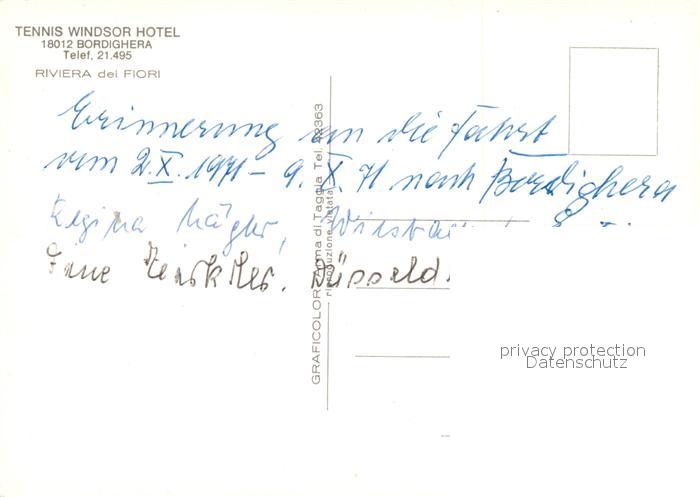 TENNIS WINDSOR HOTEL
18012 BORDIGHERA
Telef. 21.495
RIVIERA dei FIORI
Erinnerung an die Fahrt
vom 2.X. 1971 - 9.X. 71 nach Bordighera
Regina
Düsseld.
GRAFICOLOR Arma di Taggia Tel. 42363
riproduzione vietata
privacy protection
Datenschutz